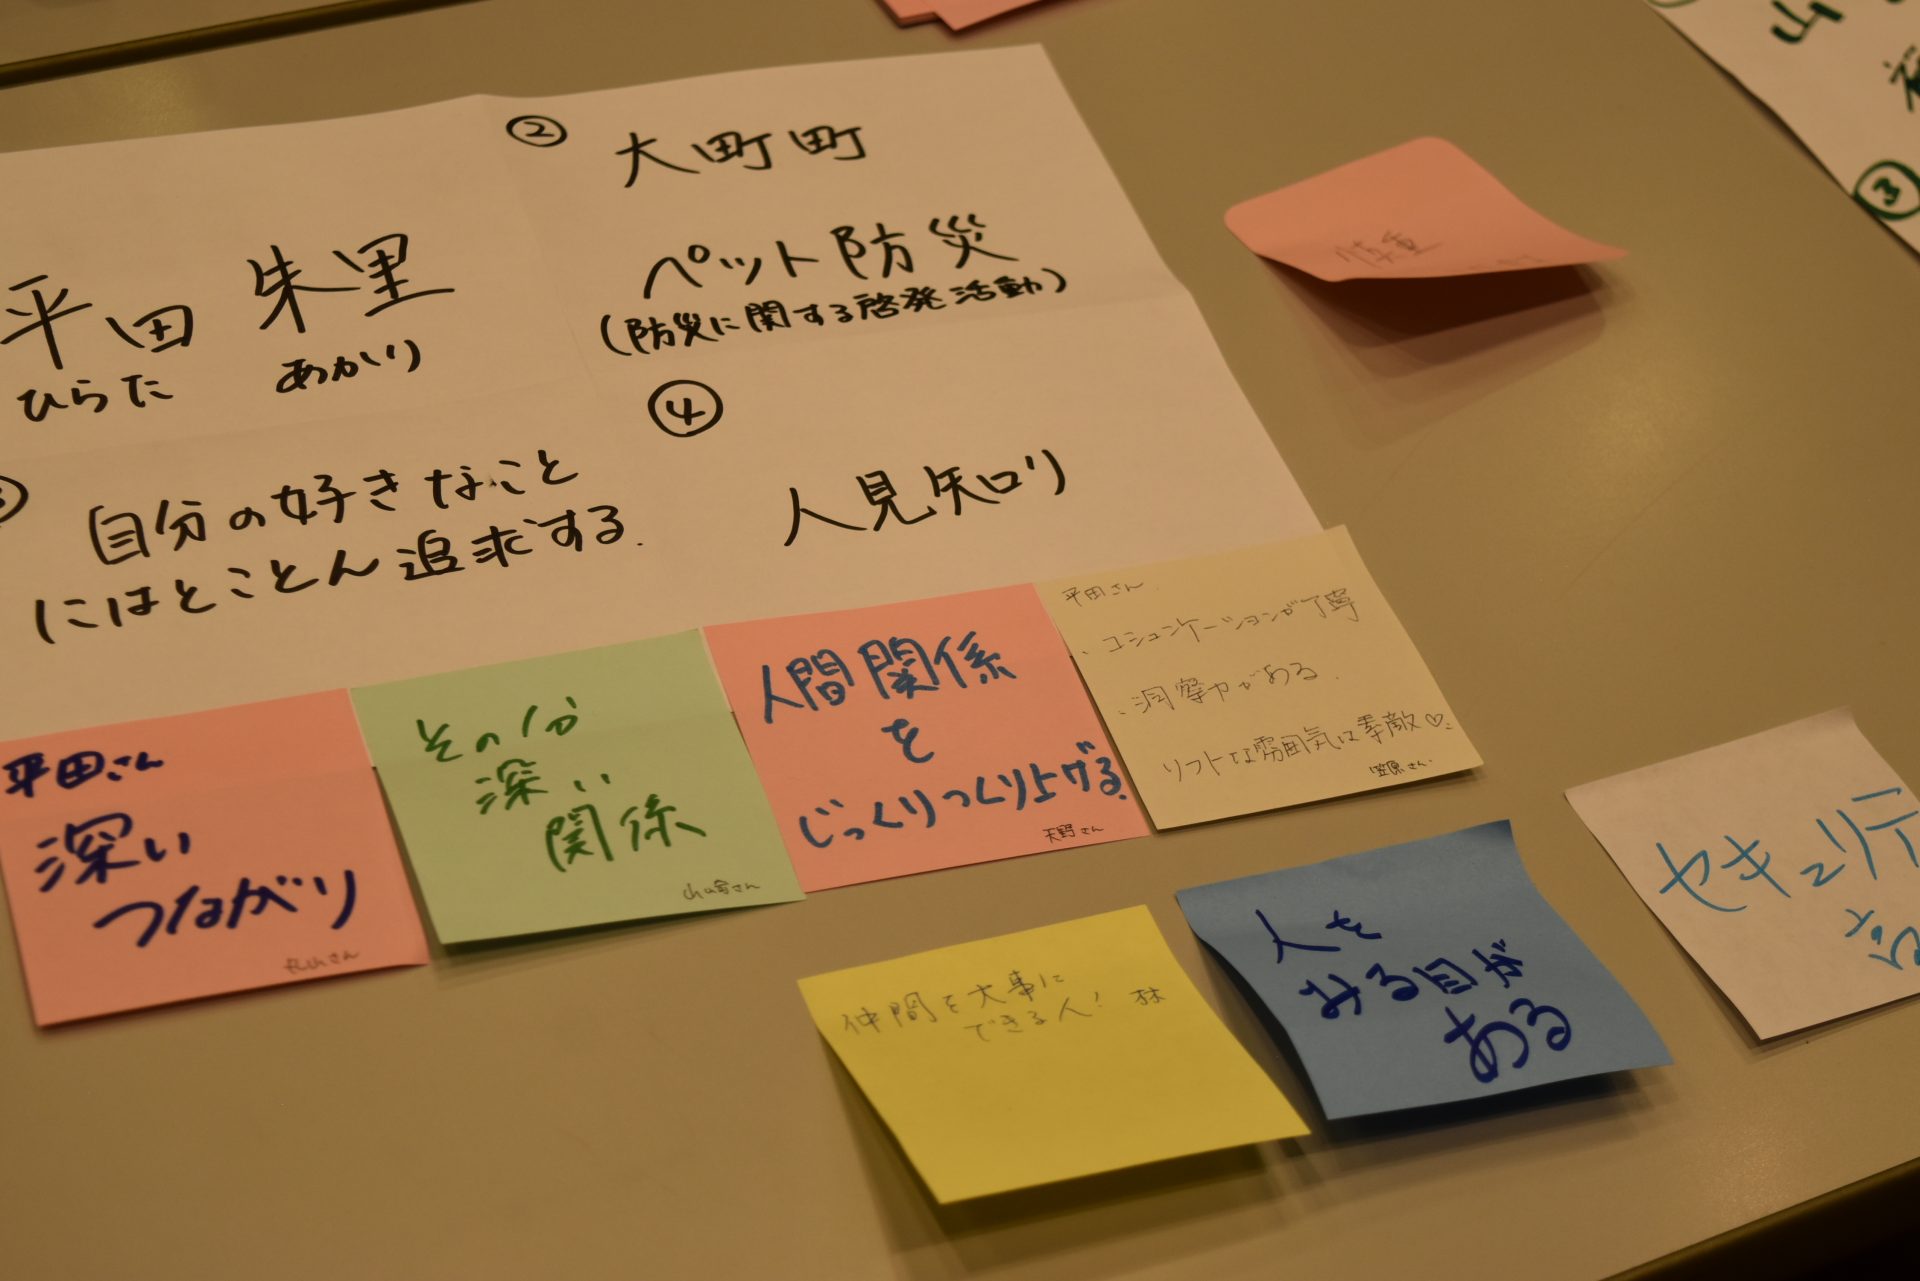 ②
大町町
平田 朱里
ひらた あかり
ペット防災
(防災に関する啓発活動)
自分の好きなこと
にはとことん追求する.
④
人見知り
平田さん
深い
つながり
その分
深い
関係
人間関係
を
じっくりつくり上げる.
天野さん
平田さん.
、コミュニケーションが丁寧
、洞察力がある.
ソフトな雰囲気は素敵♡.
笠原さん.
慎重
仲間を大事に
できる人! 林
人を
みる目が
ある
セキュリテ
山
③